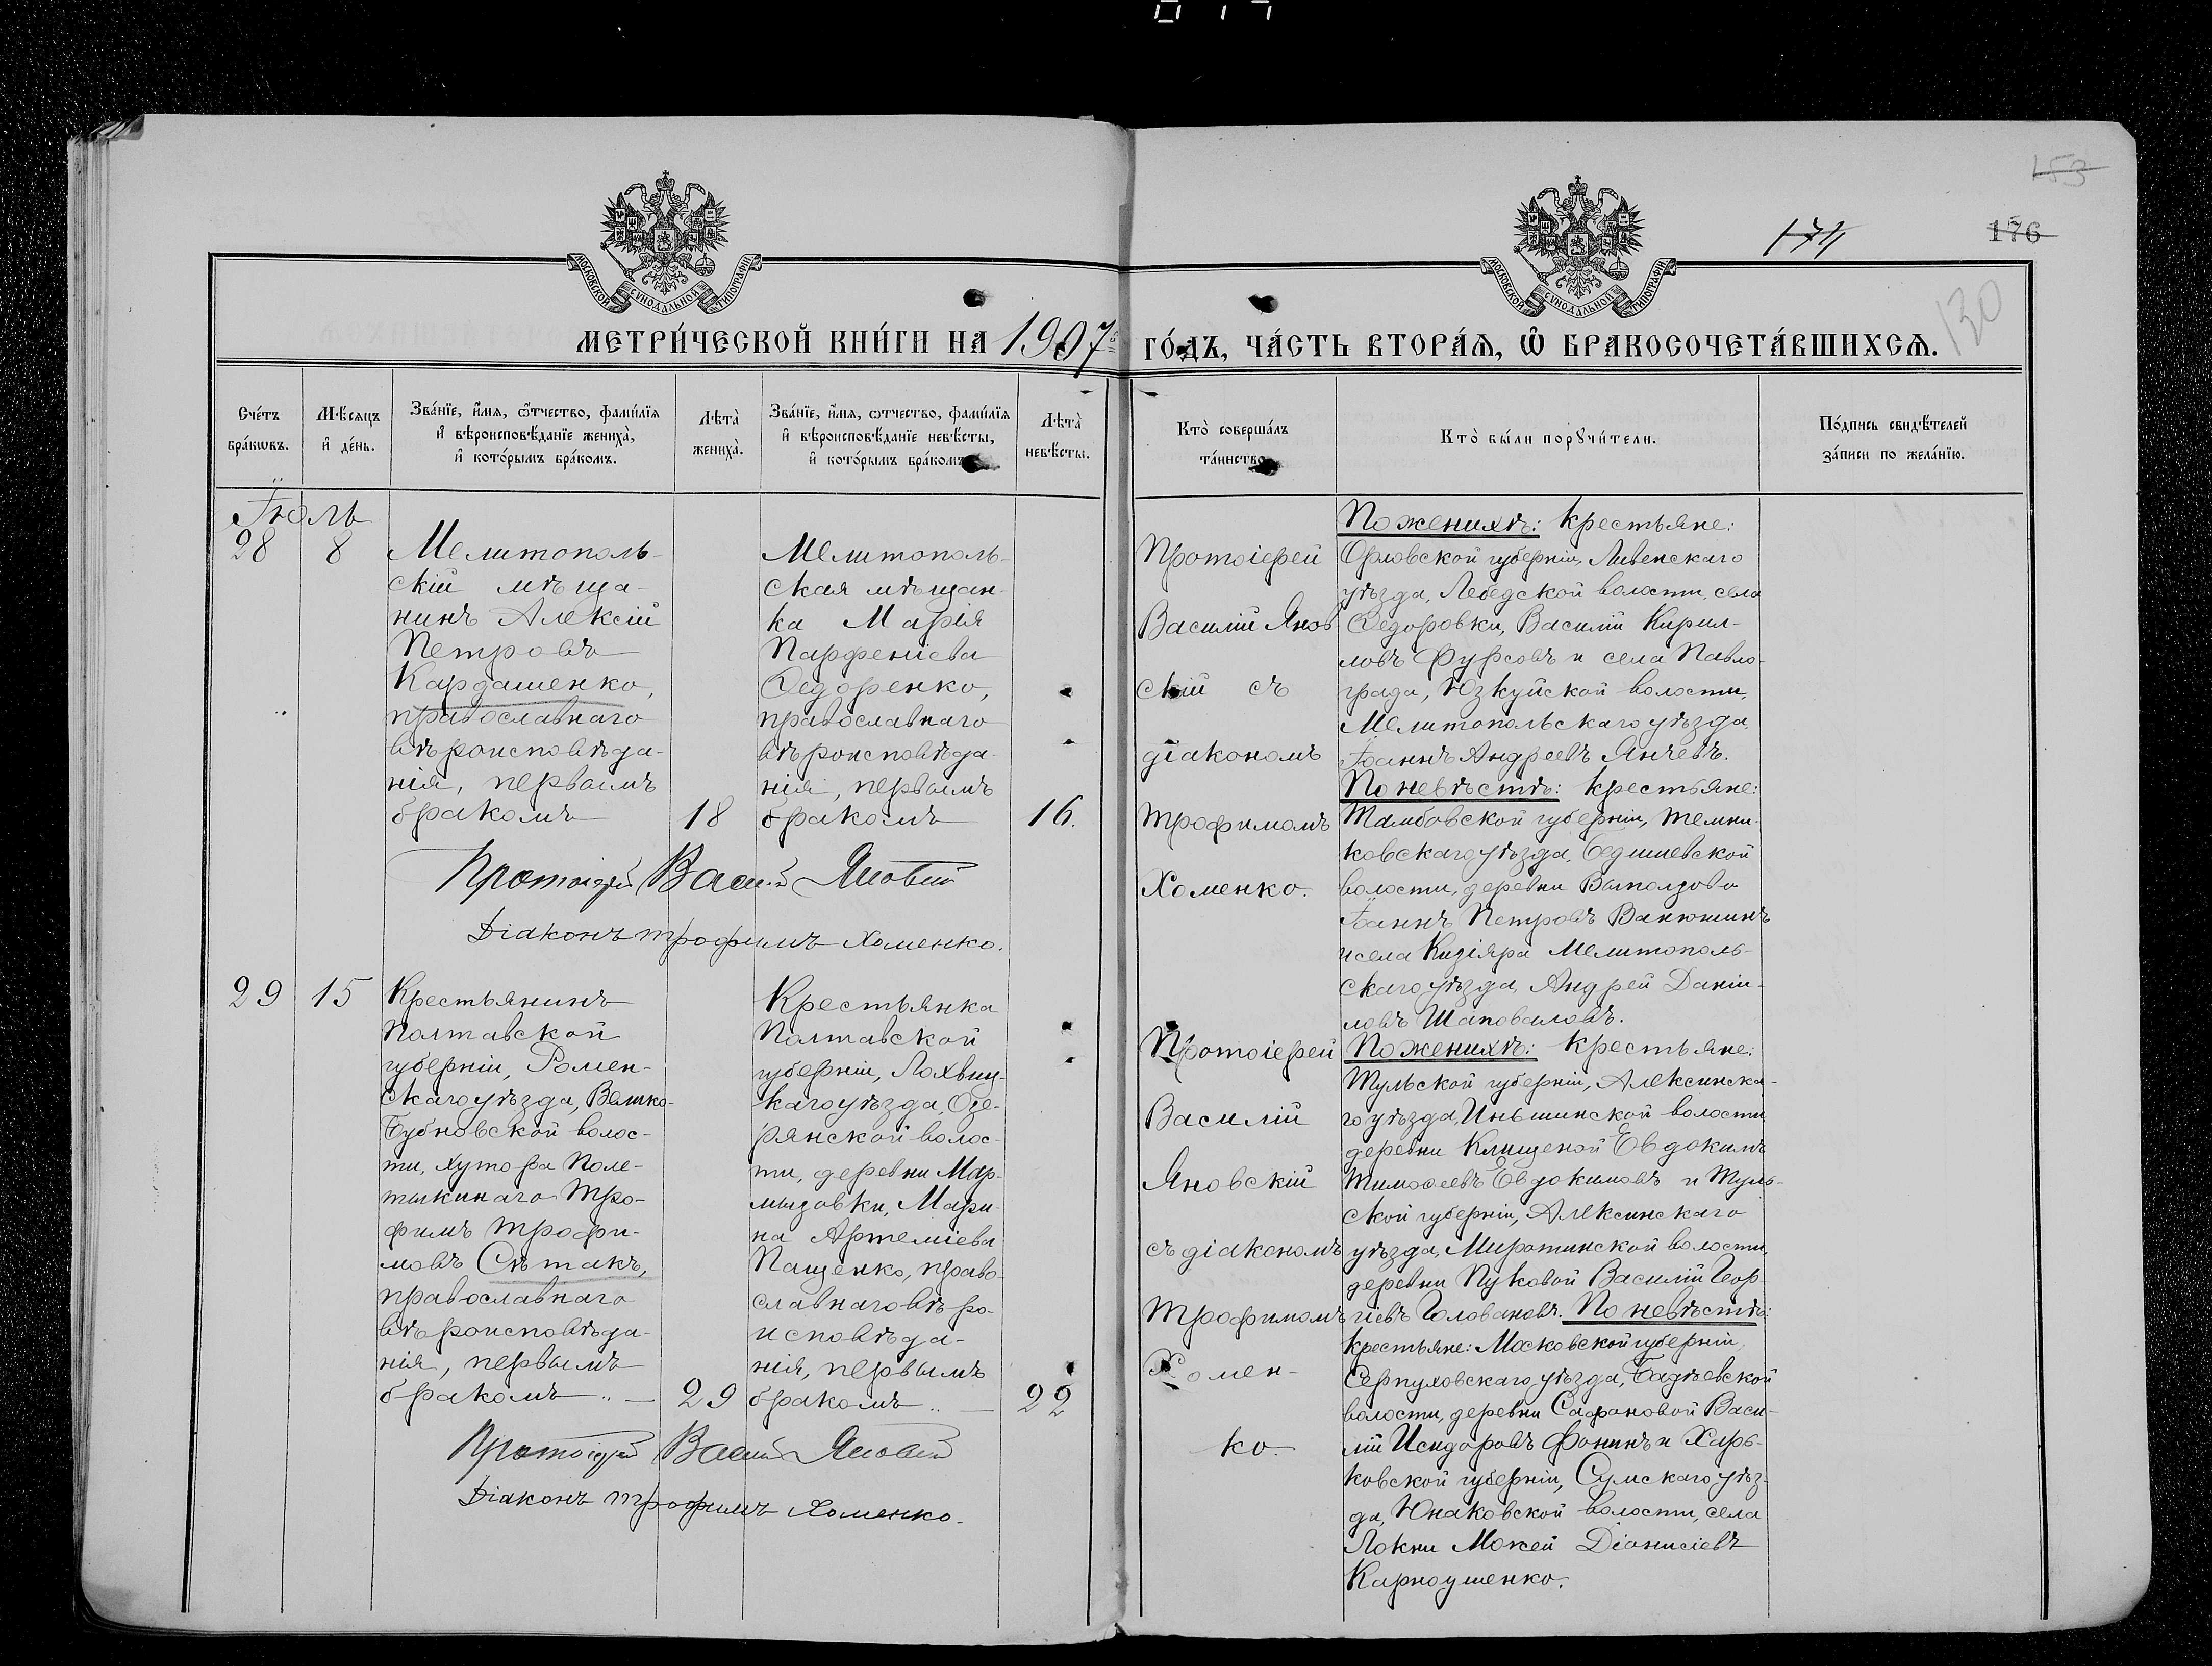 153
174
176
130
МОСКОВСКОЙ СУНОДАЛЬНОЙ ТИПОГРАФІИ
МОСКОВСКОЙ СУНОДАЛЬНОЙ ТИПОГРАФІИ
МЕТРИ́ЧЕСКОЙ КНИ́ГИ НА 1907й ГО́ДЪ, ЧА́СТЬ ВТОРА́Я, Ѡ БРАКОСОЧЕТА́ВШИХСЯ.
Сче́тъ
бра́кѡвъ.
Мѣ́сяцъ
и҆ де́нь.
Зва́нїе, и҆́мя, ѻ҆́тчество, фами́лїя
и҆ вѣроисповѣ́данїе жениха̀,
и҆ кото́рымъ бра́комъ.
Лѣта̀
жениха̀.
Зва́нїе, и҆́мя, ѻтчество, фами́лїя
и҆ вѣроисповѣ́данїе невѣ́сты,
и҆ кото́рымъ бра́комъ
Лѣта̀
невѣ́сты.
Кто̀ соверша́лъ
та́инство
Кто̀ бы́ли порꙋчи́тели.
По́дпись свидѣ́телей
за́писи по жела́нїю.
Іюль
28
8
Мелитополь-
скій мѣща-
нинъ Алексій
Петровъ
Кардашенко,
православнаго
вѣроисповѣда-
нія, первымъ
бракомъ
18
Мелитополь-
ская мѣщан-
ка Марія
Парѳеніева
Ѳедоренко,
православнаго
вѣроисповѣда-
нія, первымъ
бракомъ
16.
Протоіерей
Василій Янов
скій съ
діакономъ
Трофимомъ
Хоменко.
По женихѣ: крестьяне:
Орловской губерніи, Ливенскаго
уѣзда, Лебедской волости, села
Ѳедоровки, Василій Кирил-
ловъ Фурсовъ и села Павло-
града, Юзкуйской волости,
Мелитопольскаго уѣзда,
Іоаннъ Андреевъ Янчевъ.
По невѣстѣ: крестьяне:
Тамбовской губерніи, Темни-
ковскаго уѣзда,
волости, деревни Выползово
Іоаннъ Петровъ Ванюшинъ
и села Кизіяра Мелитополь-
скаго уѣзда, Андрей Даніи-
ловъ Шаповаловъ.
Протоіерей Василій Яновскій
Діаконъ Трофимъ Хоменко.
29
15
Крестьянинъ
Полтавской
губерніи, Ромен-
скаго уѣзда, Велико-
Бубновской волос-
ти, хутора Поле-
тыкинаго Тро-
фимъ Трофи-
мовъ Сѣтакъ,
православнаго
вѣроисповѣда-
нія, первымъ
бракомъ .. —
29
Крестьянка
Полтавской
губерніи, Лохвиц-
каго уѣзда, Озе-
рянской волос-
ти, деревни Мар-
мызовки, Мари-
на Артеміева
Пащенко, право-
славнаго вѣро-
исповѣда-
нія, первымъ
бракомъ .. —
22
Протоіерей
Василій
Яновскій
съ діакономъ
Трофимомъ
Хомен-
ко.
По женихѣ: крестьяне:
Тульской губерніи, Алексинска-
го уѣзда, Иньшинской волости
деревни Клищеной Евдокимъ
Тимоѳеевъ Евдокимовъ и Туль-
ской губерніи, Алексинскаго
уѣзда, Миротинской волости,
деревни Пуковой Василій Геор-
гіевъ Головановъ. По невѣстѣ:
крестьяне: Московской губерніи,
Серпуховскаго уѣзда, Бадѣевской
волости, деревни Сафоновой Васи-
лій Исидоровъ Фонинъ и Харь-
ковской губерніи, Сумскаго уѣз-
да, Юнаковской волости, села
Локни Мокей Діонисіевъ
Карноушенко.
Протоіерей Василій Яновскій
Діаконъ Трофимъ Хоменко.